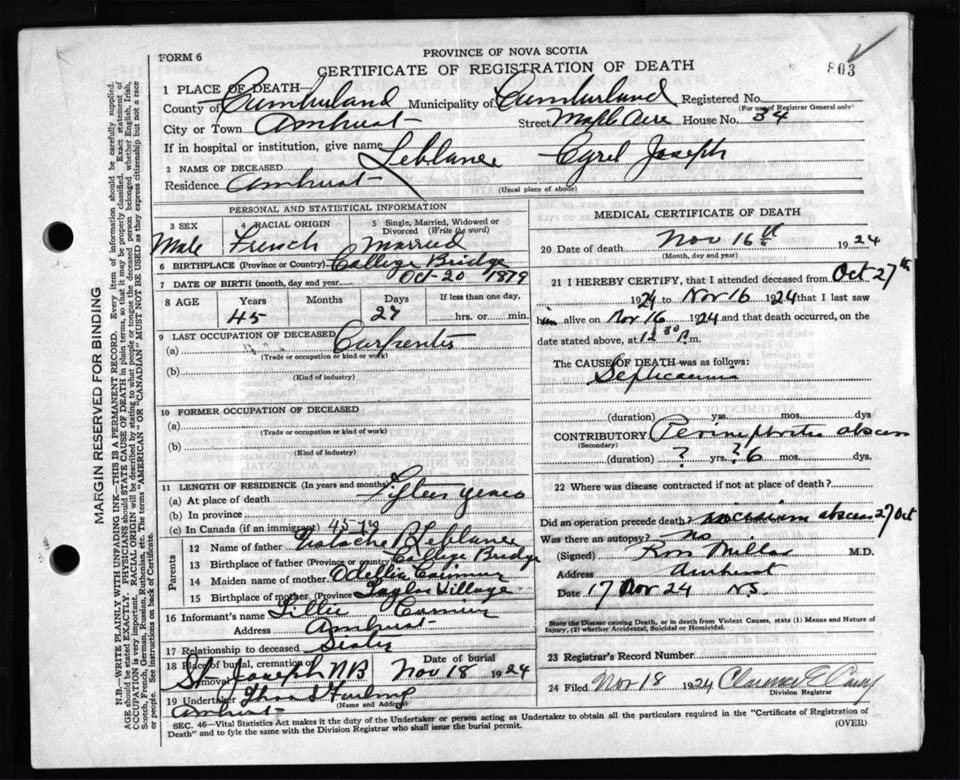 FORM 6
PROVINCE OF NOVA SCOTIA
CERTIFICATE OF REGISTRATION OF DEATH
803
1 PLACE OF DEATH—
County of Cumberland Municipality of Cumberland Registered No.
(For use of Registrar General only)
City or Town Amherst Street Maple Ave House No. 34
If in hospital or institution, give name
2 NAME OF DECEASED Leblanc Cyrel Joseph
Residence Amherst
(Usual place of abode)
PERSONAL AND STATISTICAL INFORMATION
3 SEX 4 RACIAL ORIGIN 5 Single, Married, Widowed or Divorced (Write the word)
Male French Married
6 BIRTHPLACE (Province or Country) College Bridge
7 DATE OF BIRTH (month, day and year) Oct-20 1879
8 AGE Years Months Days If less than one day,
45 27 hrs. or min.
9 LAST OCCUPATION OF DECEASED
(a) Carpenter
(Trade or occupation or kind or work)
(b)
(Kind of industry)
10 FORMER OCCUPATION OF DECEASED
(a)
(Trade or occupation or kind or work)
(b)
(Kind of industry)
11 LENGTH OF RESIDENCE (In years and months)
(a) At place of death Fifteen years
(b) In province
(c) In Canada (if an immigrant) 45-
Parents
12 Name of father Leblanc
13 Birthplace of father (Province or country) College Bridge
14 Maiden name of mother
15 Birthplace of mother (Province Taylor Village
16 Informant's name
Address Amherst
17 Relationship to deceased Sister
18 Place of burial, cremation or removal Date of burial
St Joseph NB Nov 18 1924
19 Undertaker Furlong
(Name and Address)
Amherst
MEDICAL CERTIFICATE OF DEATH
20 Date of death Nov 16th 1924
(Month, day and year)
21 I HEREBY CERTIFY, that I attended deceased from Oct 27th
1924 to Nov 16 1924 that I last saw
him alive on Nov 16 1924 and that death occurred, on the
date stated above, at 12 30 P.m.
The CAUSE OF DEATH was as follows:
Septicaemia
(duration) yrs. mos. dys
CONTRIBUTORY Perinephritic abscess
(Secondary)
(duration) ? yrs. ? 6 mos. dys.
22 Where was disease contracted if not at place of death?
Did an operation precede death? incision abscess 27 Oct
Was there an autopsy? No
(Signed) M.D.
Address Amherst
Date 17 Nov 24 NS.
State the Disease Causing Death, or in death from Violent Causes, state (1) Means and Nature of Injury, (2) whether Accidental, Suicidal or Homicidal.
23 Registrar's Record Number
24 Filed Nov 18 1924 Clarence E
Division Registrar
SEC. 46—Vital Statistics Act makes it the duty of the Undertaker or person acting as Undertaker to obtain all the particulars required in the "Certificate of Registration of
Death" and to fyle the same with the Division Registrar who shall issue the burial permit. (OVER)
MARGIN RESERVED FOR BINDING
N.B.—WRITE PLAINLY WITH UNFADING INK—THIS IS A PERMANENT RECORD. Every item of information should be carefully supplied.
AGE should be stated EXACTLY. PHYSICIANS should STATE CAUSE OF DEATH in plain terms, so that it may be properly classified. Exact statement of
OCCUPATION is very important. RACIAL ORIGIN will be described by stating to what people or tongue the deceased person belonged whether English, Irish,
Scotch, French, German, Russian, Ruthenian, etc. The terms "AMERICAN" OR "CANADIAN" MUST NOT BE USED as they express citizenship but not a race
or people. See instructions on back of Certificate.